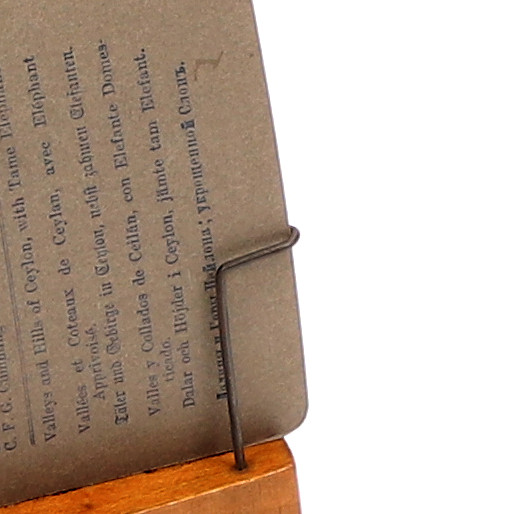 C. F. G. Cumming
Valleys and Hills of Ceylon, with Tame Elephant.
Vallées et Coteaux de Ceylan, avec Eléphant
Apprivoisé.
Täler und Gebirge in Ceylon, nebst zahmen Elefanten.
Valles y Collados de Ceilán, con Elefante Domes-
ticado.
Dalar och Höjder i Ceylon, jämte tam Elefant.
Долины и Горы Цейлона; укрощенной Слонъ.